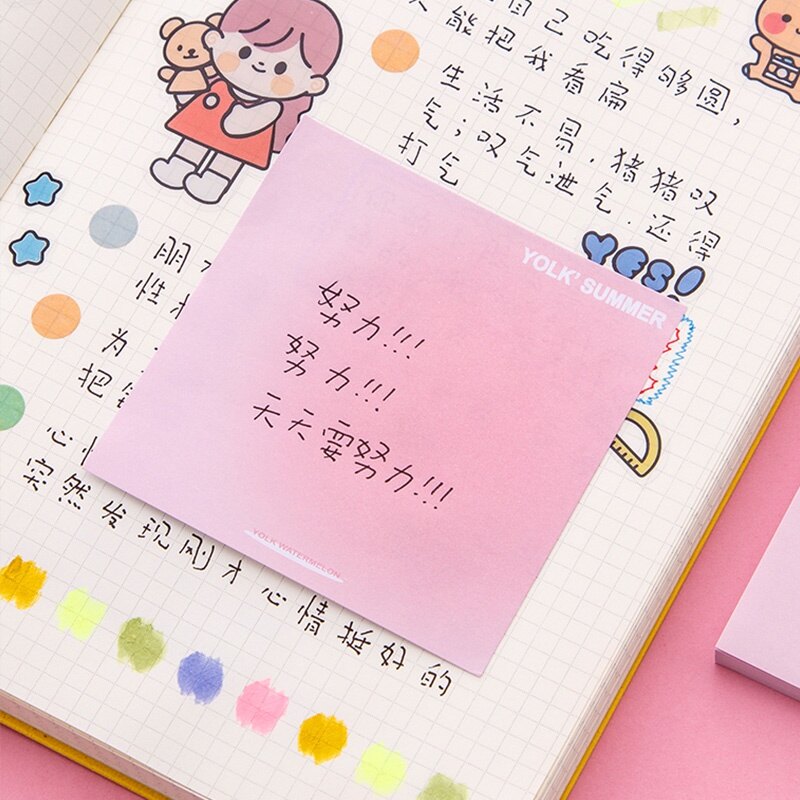 自己吃得够圆,
能把我看扁
生活不易,猪猪叹
气;叹气泄气.还得
打气
YES!
YOLK' SUMMER
努力!!!
努力!!!
天天要努力!!!
YOLK WATERMELON
朋
性
为
把
心情
突然发现刚才心情挺好的